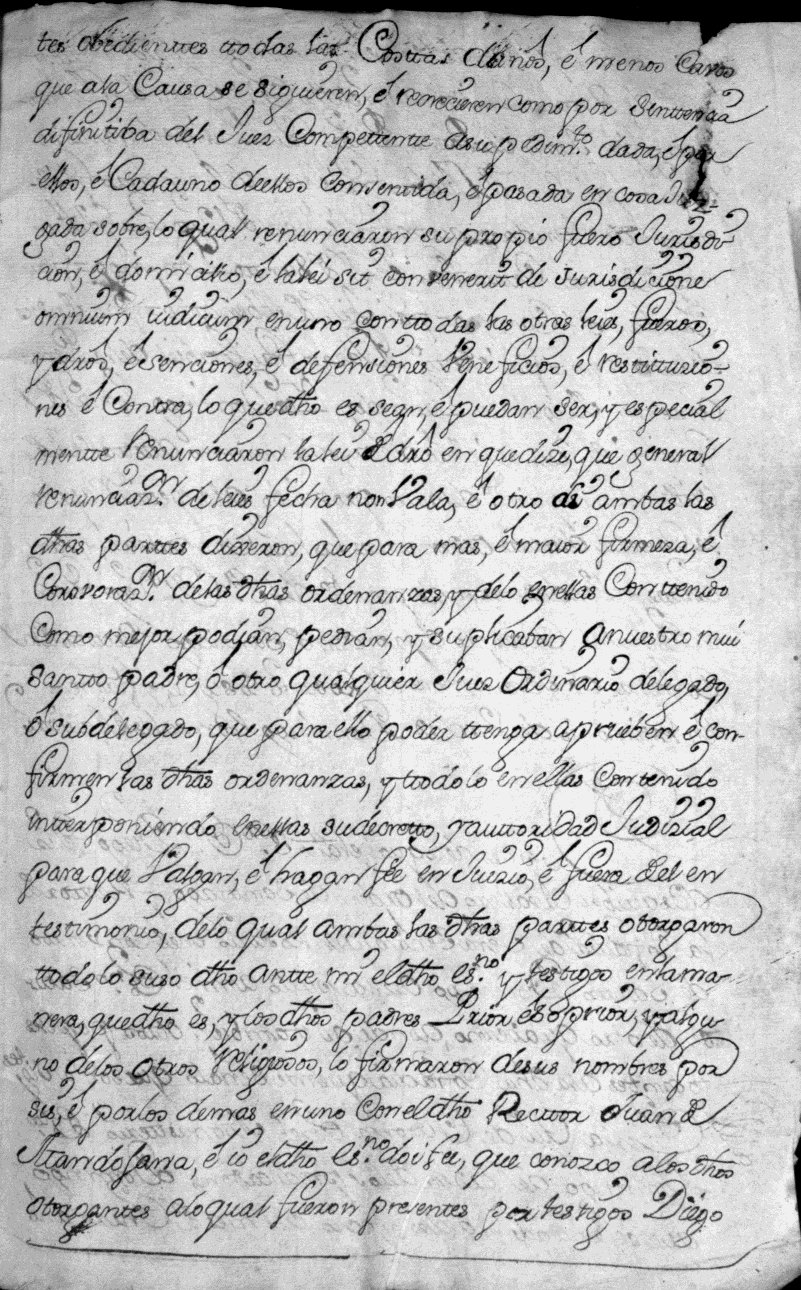 tes obedienttes ttodas las Costtas daños, é menos Cavos
que ala Causa se siguieren, é recrecieren como por senttencia
difinitiba del Juez Compettentte de su pedim.to dada, é por
ellos, é Cadauno deellos consentida, é pasada en cosa Juz=
gada sobre, lo qual renunciaron su propio fuero Jurisdi
cion, é domicilio, é la lei sit convenerit de Jurisdicione
omnium iudicum en uno con ttodas las otras leies, fueros,
y dros, é senciones, é defensiones Veneficios, é restituzio-
nes é Contra, lo que dho es sean, é puedan ser, y especial
mentte renunciaron la lei del dro en que dize, que general
renunciaz.on de leies fecha non Vala, é otro si ambas las
dhas parttes dixeron, que para mas, é maior firmeza, é
Corovoraz.on de las dhas ordenanzas, y delo en ellas Conttenido
Como mejor podian, pedian, y suplicaban a nuestro mui
santto padre, ó otro qualquier Juez Ordinario delegado,
ó subdelegado, que para ello poder ttenga aprueben é con-
firmen las dhas ordenanzas, y ttodo lo en ellas contenido
intterponiendo en ellas su decretto, y auttoridad Judizial
para que Valgan, é hagan fee en Juizio, é fuera del en
testimonio, delo qual ambas las dhas parttes otorgaron
ttodo lo suso dho antte mi el dho es.no y testigos en la ma-
nera, que dho es, y los dhos padres Prior é Soprior, y algu
no delos otros religiosos, lo firmaron desus nombres por
sis, é por los demas en uno Con el dho Recttor Juan de
Itandosarra, é io el dho es.no doi fee, que conozco a los dhos
otorgantes alo qual fueron presentes por testigos Diego